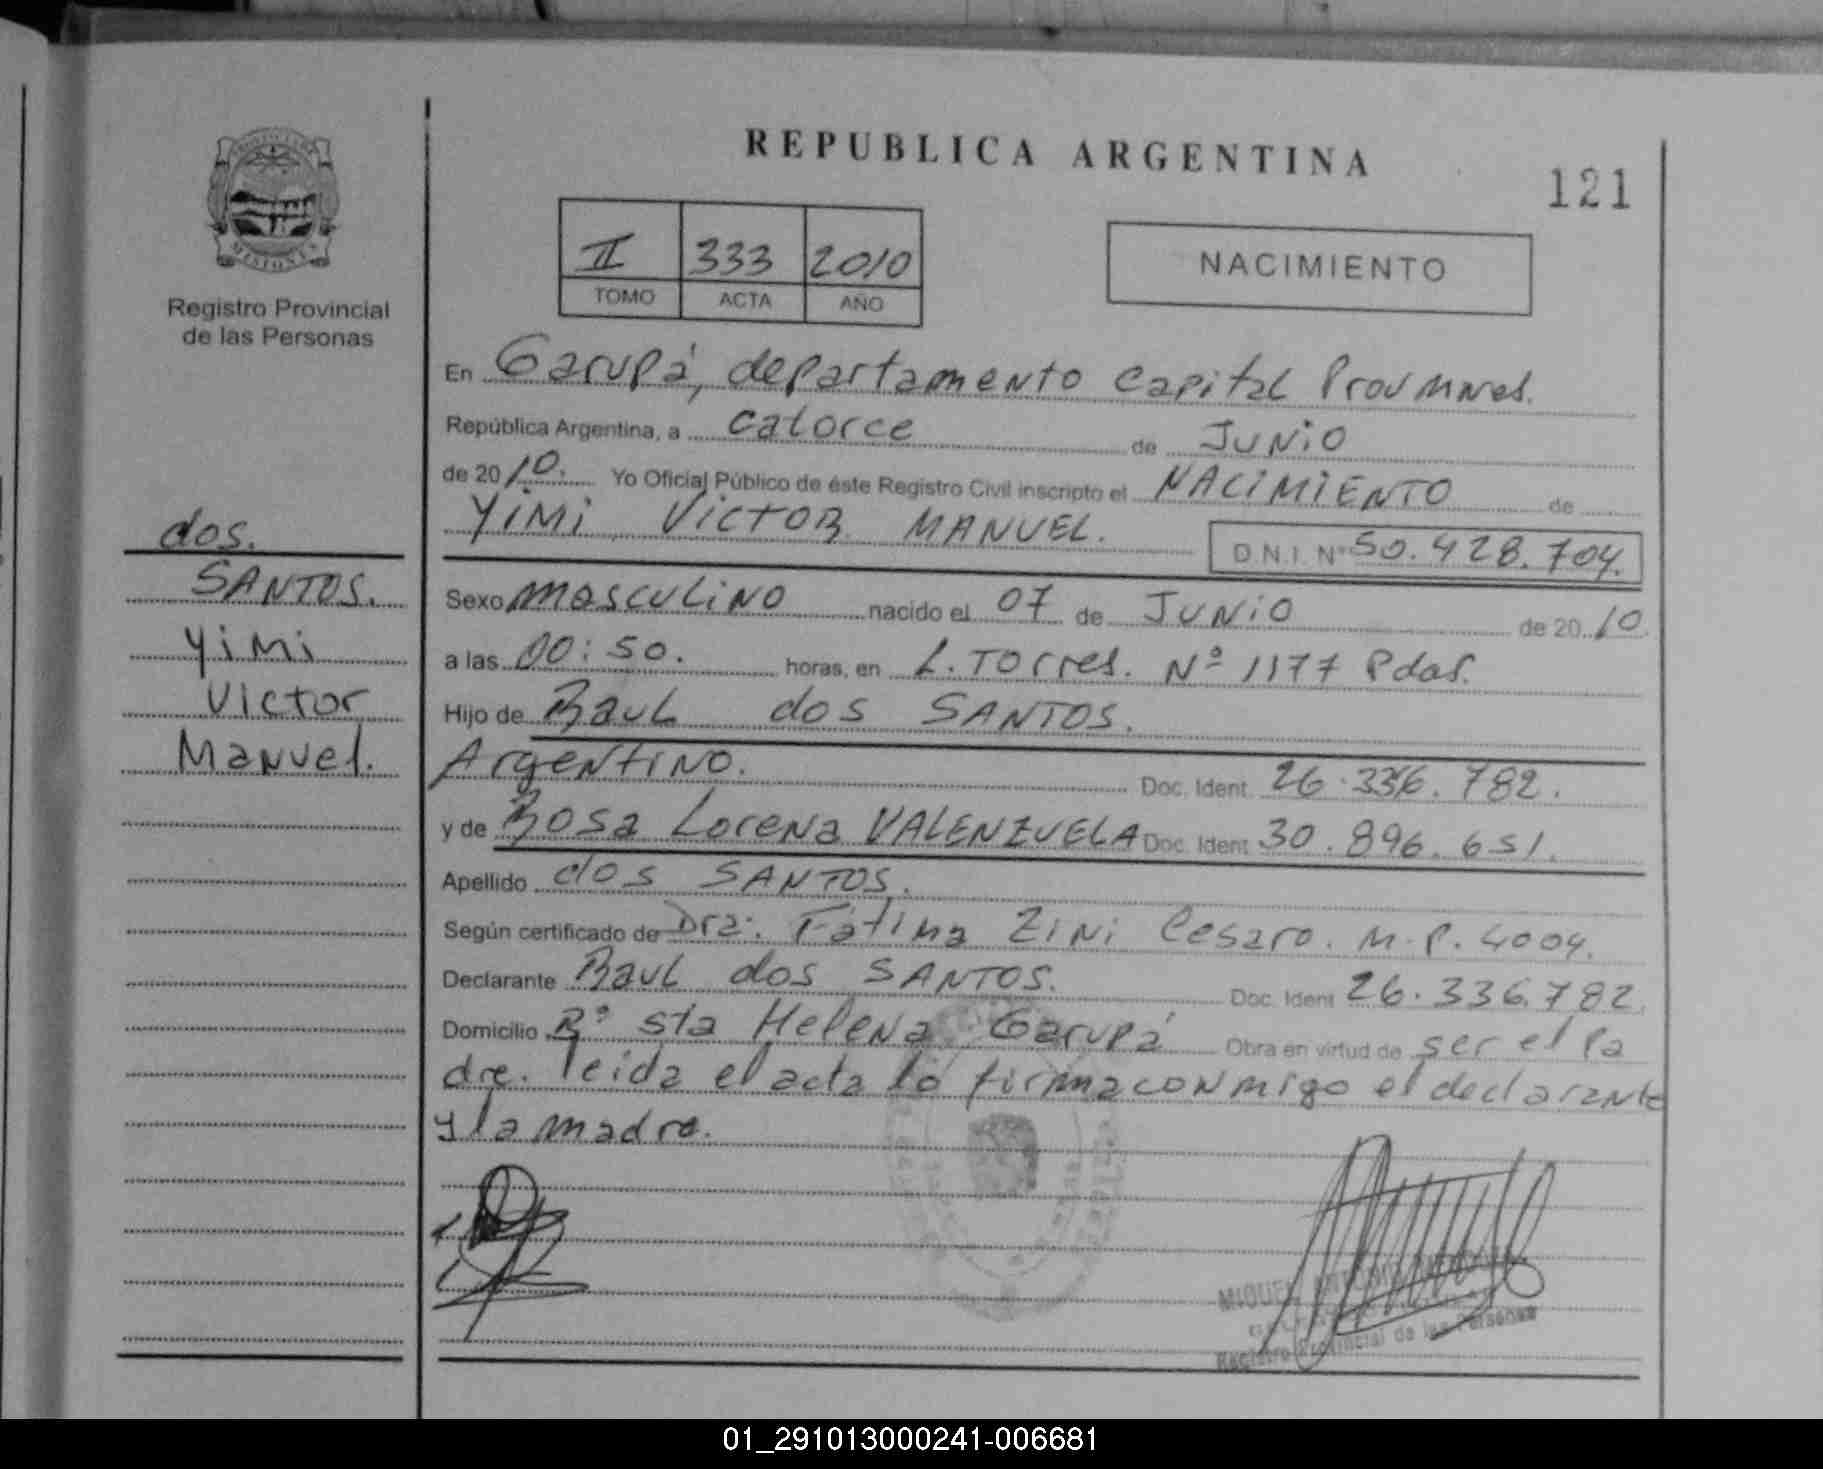 REPUBLICA ARGENTINA
121
MISIONES
Registro Provincial
de las Personas
II 333 2010
TOMO ACTA AÑO
NACIMIENTO
dos.
SANTOS.
Yimi
Victor
Manuel.
En Garupá, departamento Capital Prov Mnes.
República Argentina, a catorce de JUNiO
de 2010. Yo Oficial Público de éste Registro Civil inscripto el NACiMiENTO de
YiMi VicTOR MANUEL. D.N.I. Nº 50.428.704.
Sexo masculiNO nacido el 07 de JUNiO de 2010
a las 00:50. horas, en L. Torres. Nº 1177 Pdas.
Hijo de RauL dos SANTOS.
ArgentiNO. Doc. Ident. 26.336.782.
y de Rosa Lorena VALENZUELA Doc. Ident. 30.896.651.
Apellido dos SANTOS.
Según certificado de Dra. Fátima Zini Cesaro. M.P. 4004.
Declarante RauL dos SANTOS. Doc. Ident 26.336.782
Domicilio Bº sta Helena Garupá Obra en virtud de ser el pa
dre. leida el acta lo firma conmigo el declarante
y la madre.
MIGUEL ANTONIO
Registro Provincial de las Personas
01_291013000241-006681